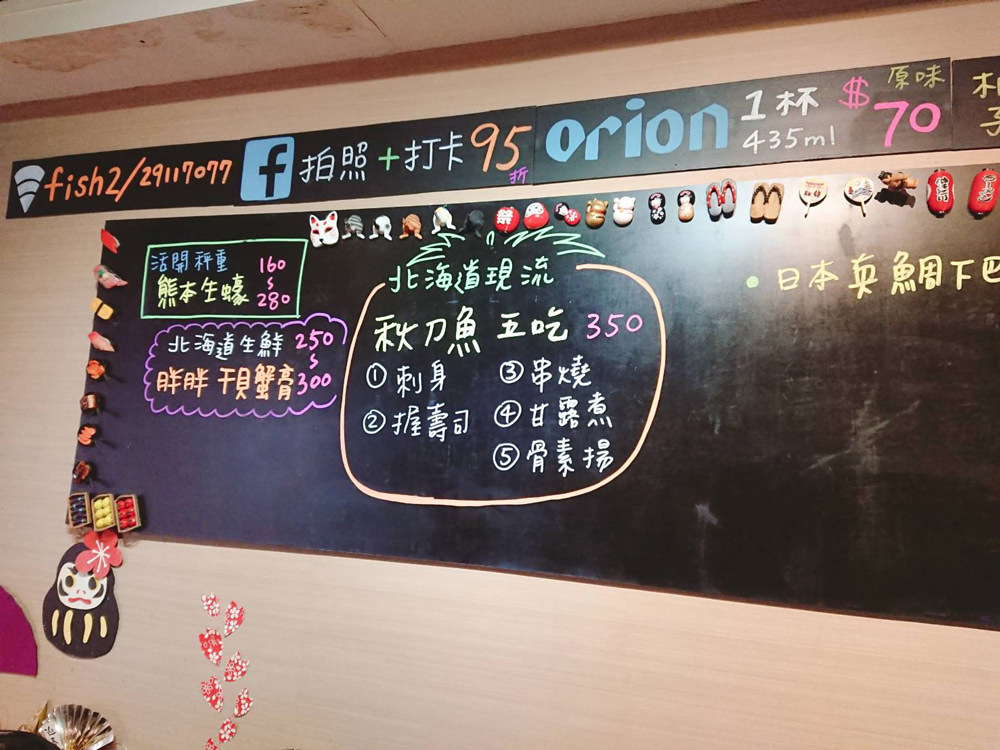 fish2/29117077
f 拍照+打卡 95折
orion 1杯 435ml $70 原味
活開秤重 160
熊本生蠔 〜280
北海道生鮮 250
胖胖干貝蟹膏 〜300
北海道現流
秋刀魚 五吃 350
①刺身
②握壽司
③串燒
④甘露煮
⑤骨素揚
•日本真鯛下巴
祭